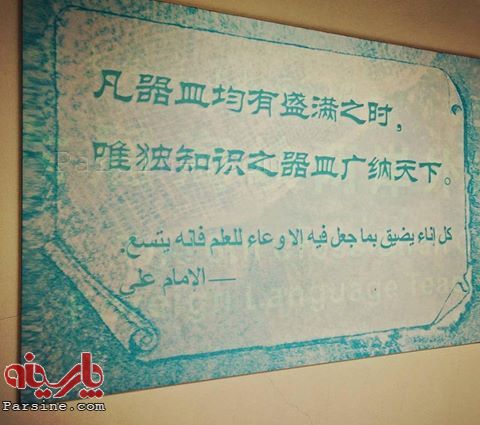 凡器皿均有盛满之时，
唯独知识之器皿广纳天下。
كل إناء يضيق بما جعل فيه الا وعاء للعلم فانه يتسع.
— الامام علي
Language
پارسینه
Parsine.com